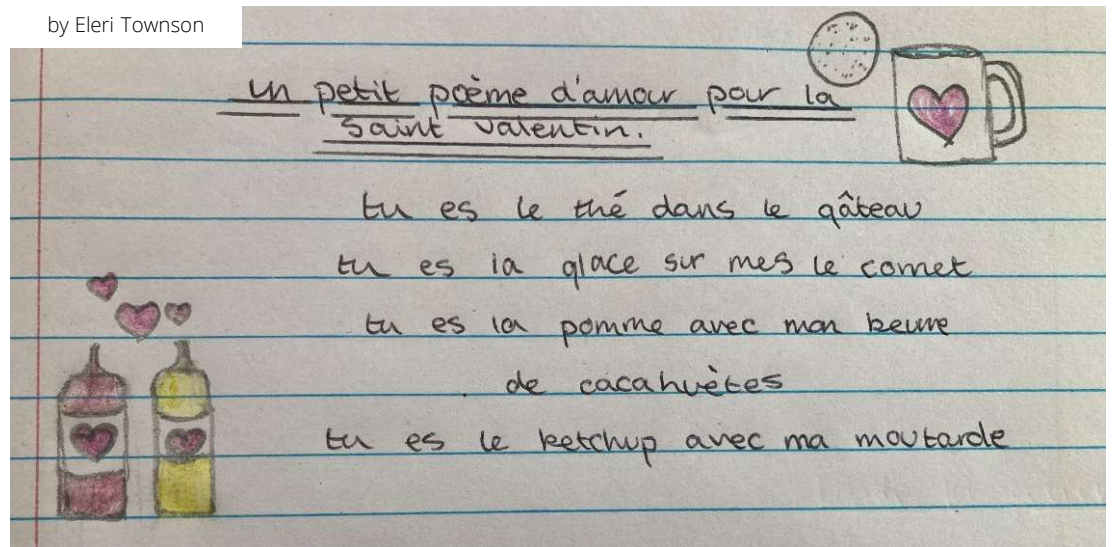 by Eleri Townson
un petit poème d'amour pour la
Saint Valentin.
tu es le thé dans le gâteau
tu es la glace sur mes le cornet
tu es la pomme avec mon beurre
de cacahuètes
tu es le ketchup avec ma moutarde